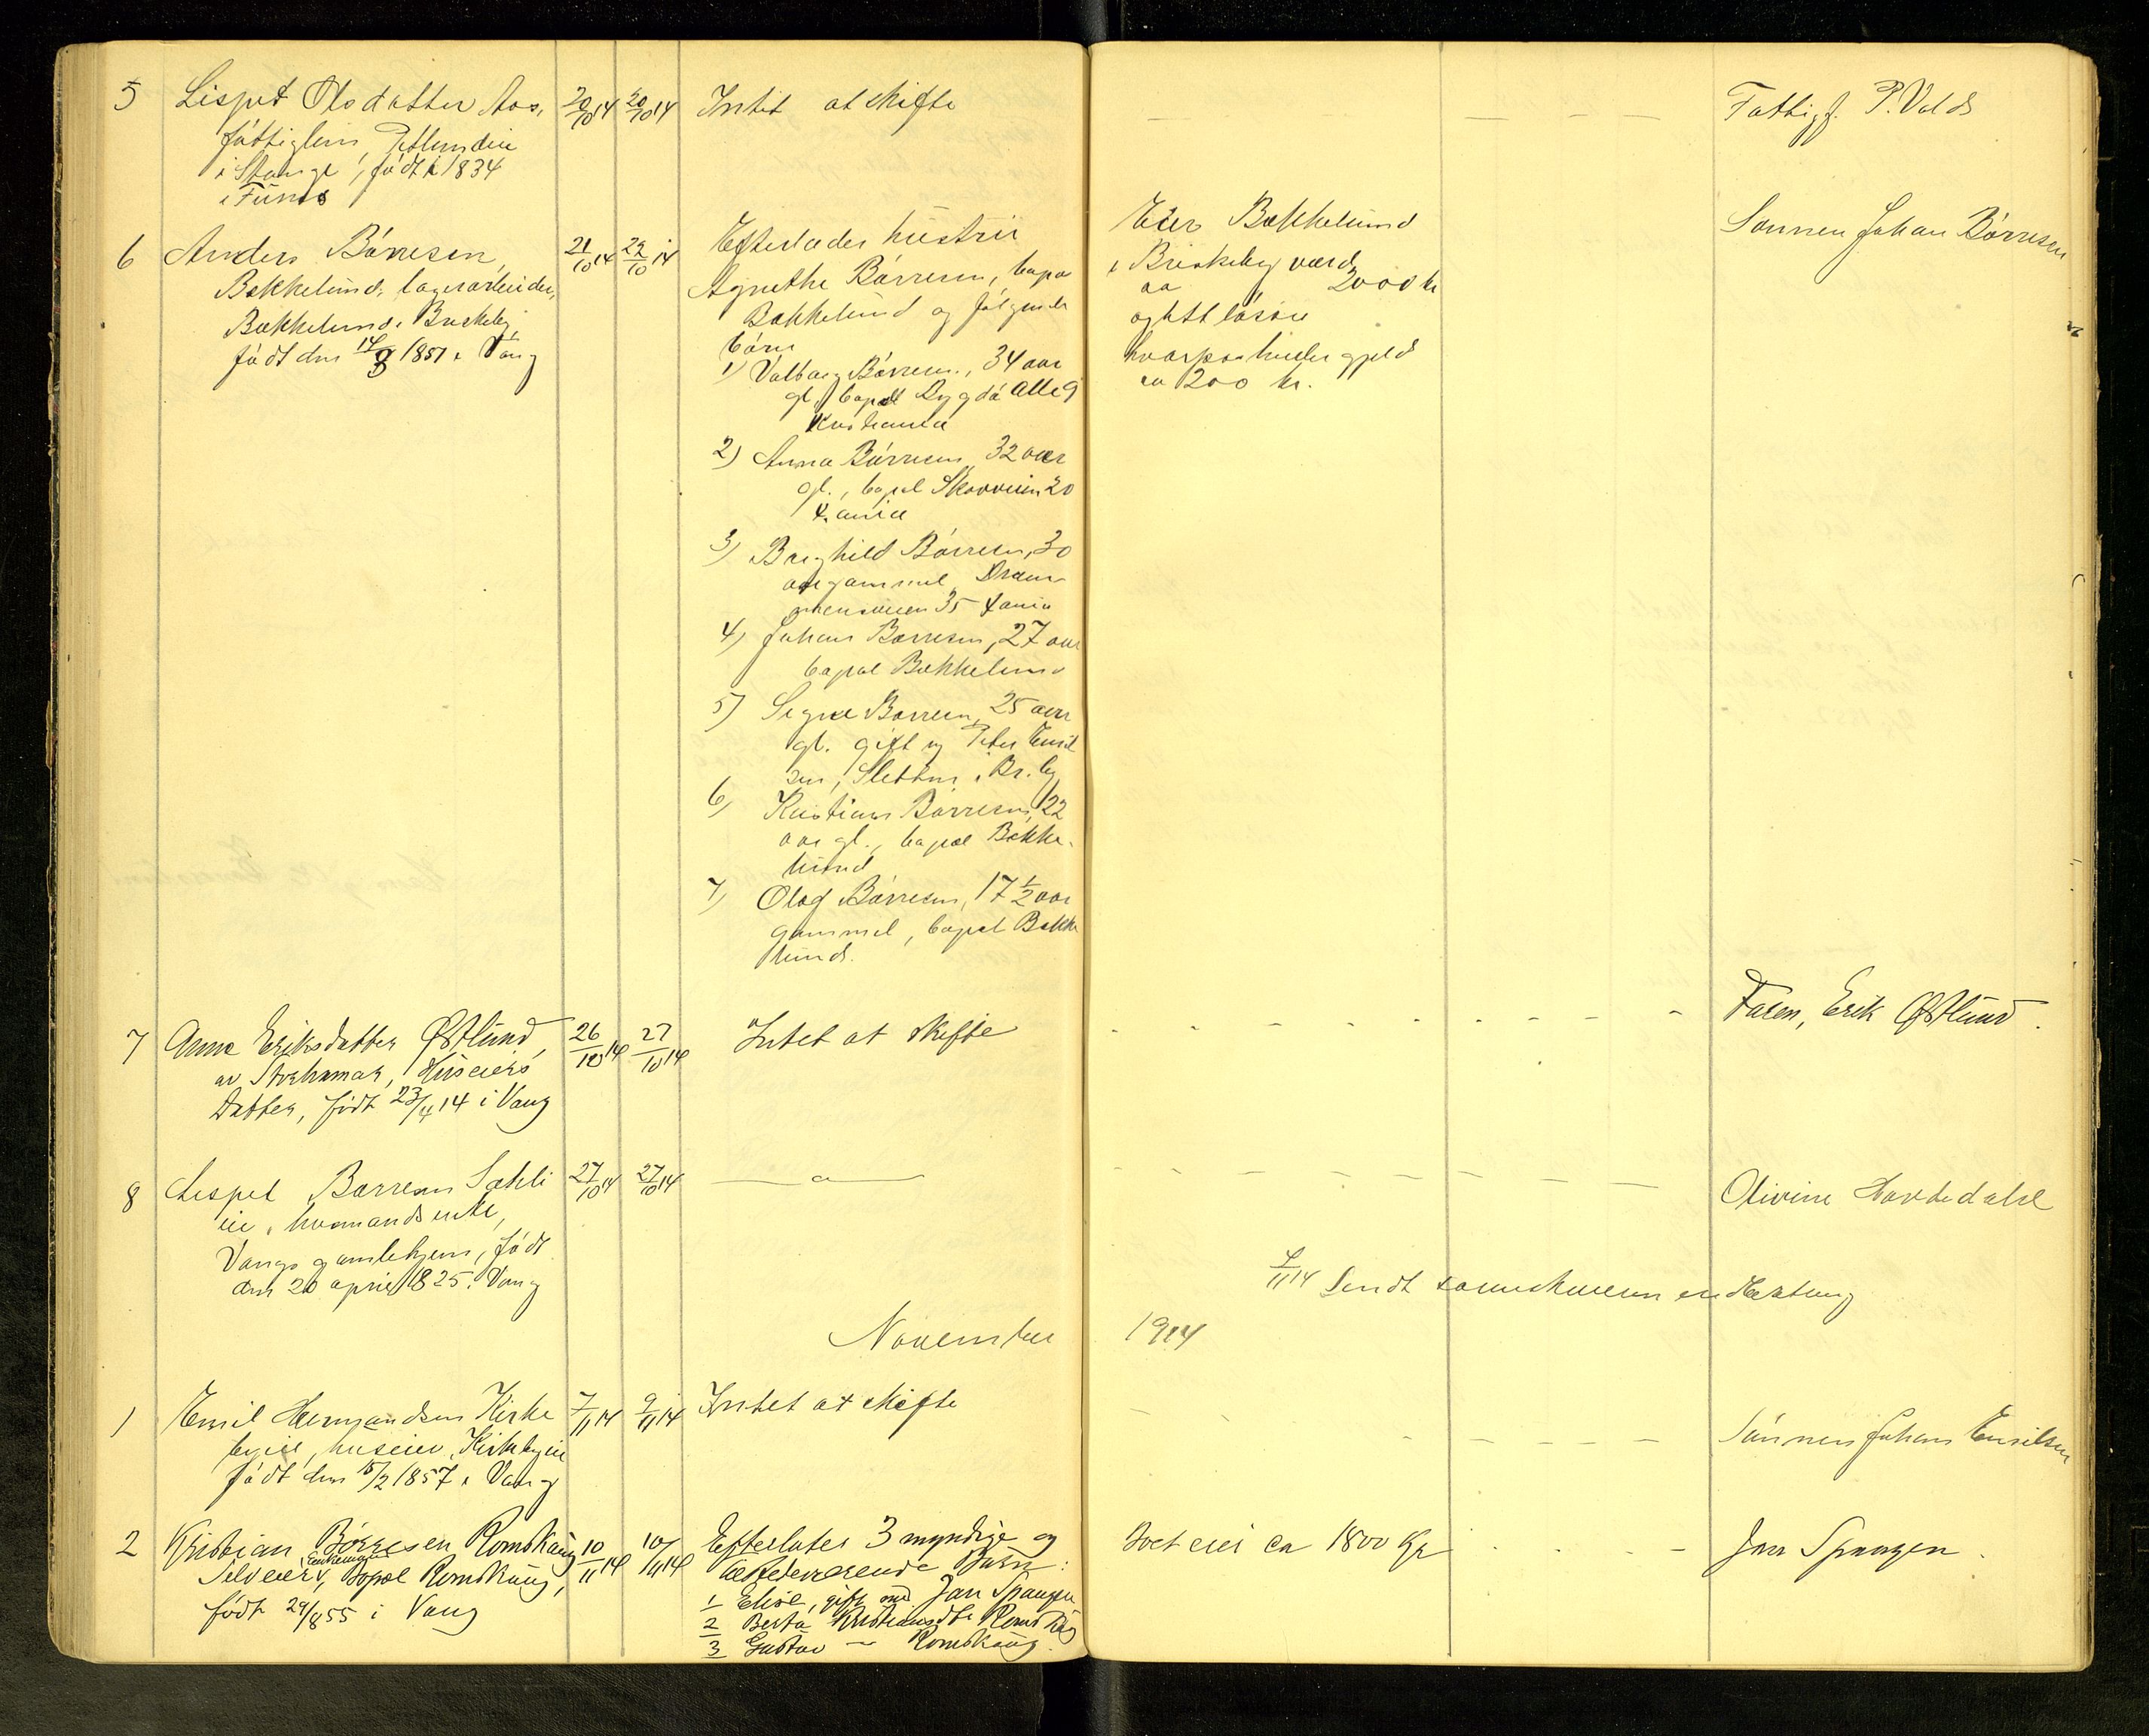 5 Lispet Olsdatter Aas, 20/10 14 20/10 14 Intet at skifte — — — — Fattigf. P. Vold
fattiglem,
i Stange, født i 1834
i Furnes
6 Anders Børresen, 21/10 14 22/10 14 Efterlader hustru
Bækkelund, lagerarbeider,
Bækkelund i Briskeby,
født den 14/9 1851 i Vang
Agnethe Børresen, bopæl
Bækkelund og følgende
børn
1) Valborg Børresen, 34 aar
gl., bopæl Bygdø Alle 9
Kristiania
2) Anna Børresen, 32 aar
gl., bopæl Skovveien 20
Kr.ania
3) Borghild Børresen, 30
aar gammel, Dram-
mensveien 35 Kr.ania
4) Johan Børresen, 27 aar
bopæl Bækkelund
5) Signe Børresen, 25 aar
gl. gift m Peter Emil
sen, Sletten i Br.by
6) Kristian Børresen, 22
aar gl., bopæl Bække-
lund
7) Olaf Børresen, 17 1/2 aar
gammel, bopæl Bække
lund.
Eier Bækkelund
i Briskeby værd
ca 2000 kr
og litt løsøre
hvorpaa hviler gjeld
ca 200 kr.
Sønnen Johan Børresen
7 Anna Eriksdatter Østlund, 26/10 14 27/10 14 Intet at skifte - - - - Faren, Erik Østlund.
av Storhamar, Huseiers
Datter, født 23/4 14 i Vang
8 Lispet Børresen Sæhli 27/10 14 27/10 14 — a — — — — — Olivine Hovdedalæ
eie, husmandsenke,
Vangs gamlehjem, født
den 20 april 1825 i Vang
4/11 14 Sendt sorenskriveren en Hertung
November 1914
1 Emil Hermandsen Kirke 7/11 14 9/11 14 Intet at skifte - - - - Sønnen Johan Emilsen
byeie, huseier, Kirkebyeie
født den 15/2 1857 i Vang
2 Kristian Børresen Romskaug 10/11 14 10/11 14 Efterlater 3 myndige og
Enkemand
Selveier, Bopæl Romskaug,
født 29/8 55 i Vang
tilstedeværende Børn:
1 Elise, gift med Jan Spangen
2 Berta Kristiansdtr Romskaug
3 Gustav — Romskaug.
Boet eier ca 1800 Kr - - - Jan Spangen.